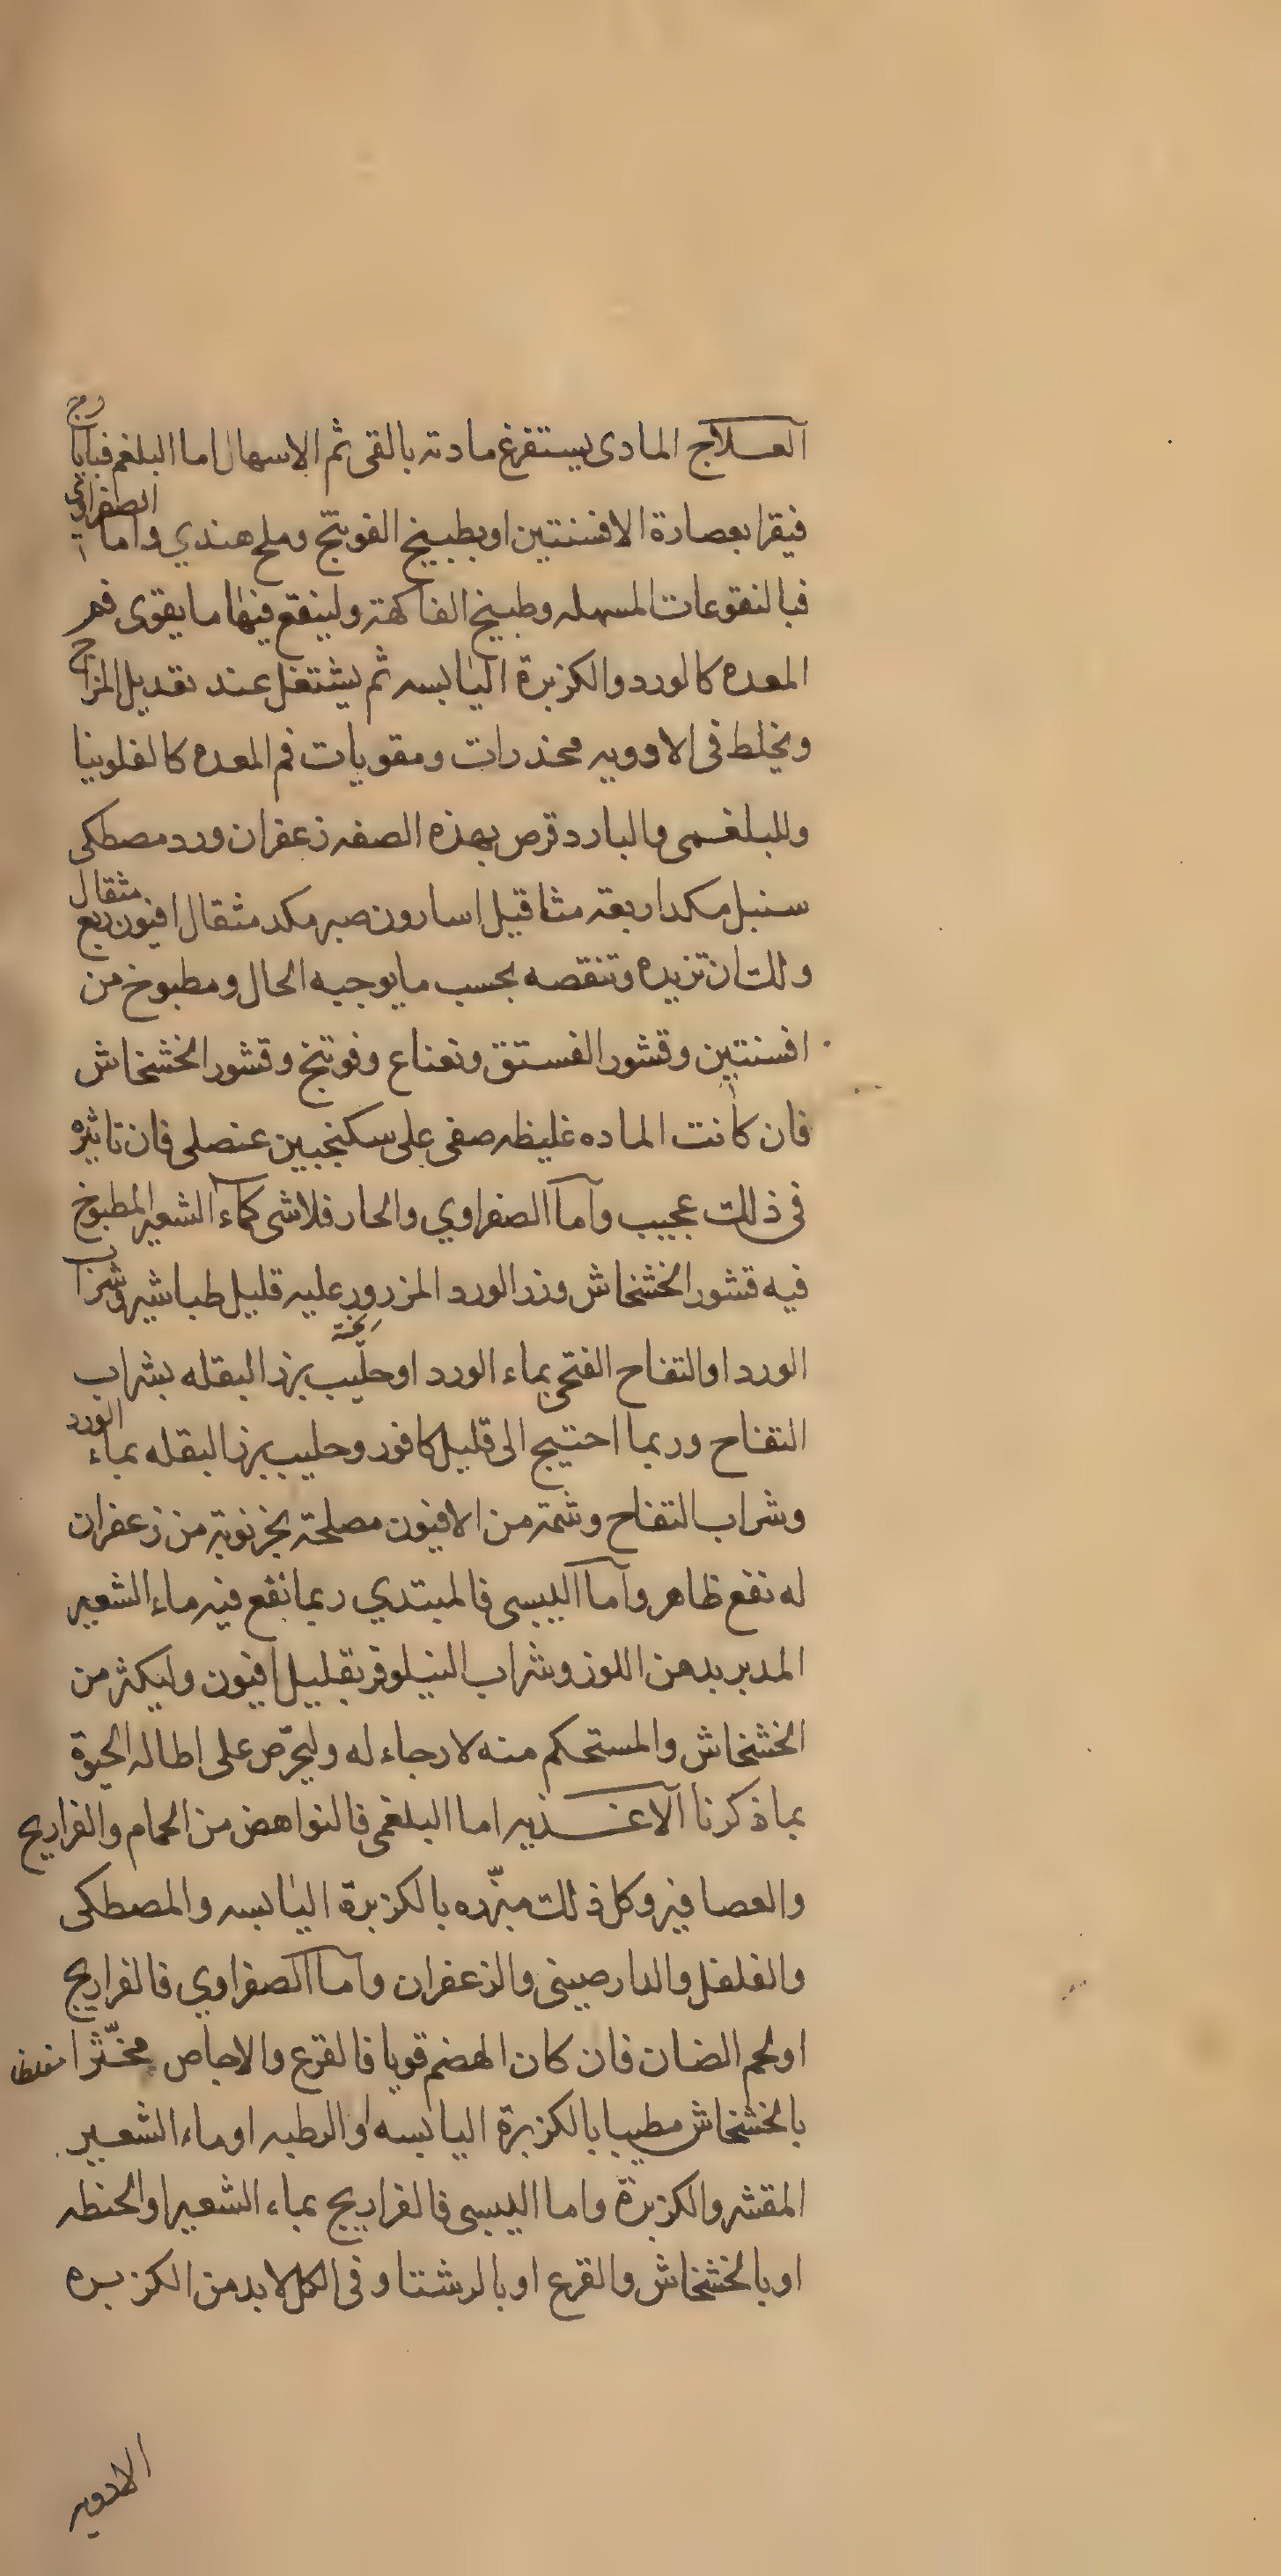 العلاج المادى يستفرغ مادته بالقى ثم الاسهال اما البلغم فبايارج
فيقرا بعصارة الافسنتين او بطبيخ الفوتنج وملح هندي واما الصفراوي
فبالنقوعات المسهله وطبيخ الفاكهة ولينقع فيها ما يقوى فم
المعده كالورد والكزبرة اليابسه ثم يشتغل عند تعديل المزاج
ويخلط فى الادويه مخدرات ومقويات فم المعده كالفلونيا
وللبلغمى والبارد قرص بهذه الصفه زعفران ورد مصطكى
سنبل مكد اربعة مثاقيل اسارون صبر مكد مثقال افيون ربع مثقال
ولك ان تزيده وتنقصه بحسب ما يوجبه الحال ومطبوخ من
افسنتين وقشور الفستق ونعناع وفوتنج وقشور الخشخاش
فان كانت الماده غليظه صفى على سكنجبين عنصلى فان تاثيره
فى ذلك عجيب واما الصفراوي والحار فلاشى كماء الشعير المطبوخ
فيه قشور الخشخاش وزر الورد المزرور عليه قليل طباشير وشراب
الورد او التفاح الفتحى بماء الورد او حليب بزر البقله بشراب
التفاح وربما احتيج الى قليل كافور وحليب بزر البقله بماء الورد
وشراب التفاح وشمة من الافيون مصلحة بخرنوبة من زعفران
له نفع ظاهر واما اليبسى فالمبتدي ربما نفع فيه ماء الشعير
المدبر بدهن اللوز وشراب النيلوفر بقليل افيون وليكثر من
الخشخاش والمستحكم منه لا رجاء له وليحرّص على اطاله الحيوة
بما ذكرنا الاغذيه اما البلغمى فالنواهض من الحمام والفراريج
والعصافير وكل ذلك مبزّره بالكزبرة اليابسه والمصطكى
والفلفل والدارصينى والزعفران واما الصفراوي فالفراريج
او لحم الضان فان كان الهضم قويا فالقرع والاجاص مخثّرا
بالخشخاش مطيبا بالكزبرة اليابسه او الرطبه او ماء الشعير
المقشر والكزبرة واما اليبسى فالفراريج بماء الشعير او الحنطه
او بالخشخاش والقرع او بالرشتا وفى الكل لا بد من الكزبره
الادويه